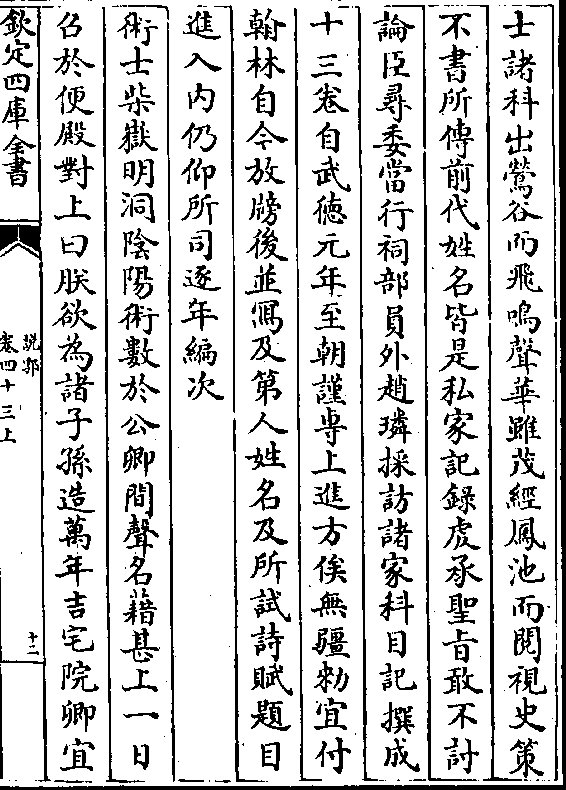 士諸科出鶯谷而飛鳴聲華雖茂經鳳池而閱視史策
不書所傳前代姓名皆是私家記錄虔承聖旨敢不討
論臣尋委當行祠部員外趙璘採訪諸家科目記撰成
十三卷自武德元年至朝謹專上進方俟無疆勅宜付
翰林自今放牓後並寫及第人姓名及所試詩賦題目
進入内仍仰所司逐年編次
術士柴嶽明洞陰陽術數於公卿間聲名藉甚上一日
召於便殿對上曰朕欲為諸子孫造萬年吉宅院卿宜
欽定四庫全書
說郛
卷四十三上
十二